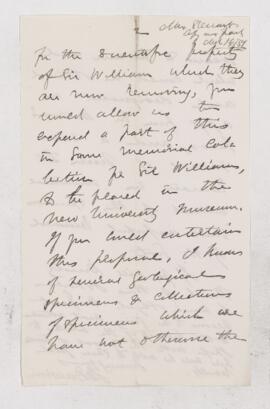 2
for the scientific property
of Sir William which they
are now removing, you
would allow us to
expend a part of this
in some memorial Col
lection for Sir William,
to be placed in the
new University Museum.
If you could entertain
this proposal, I know
of several geological
specimens & collections
of specimens which we
have not otherwise the